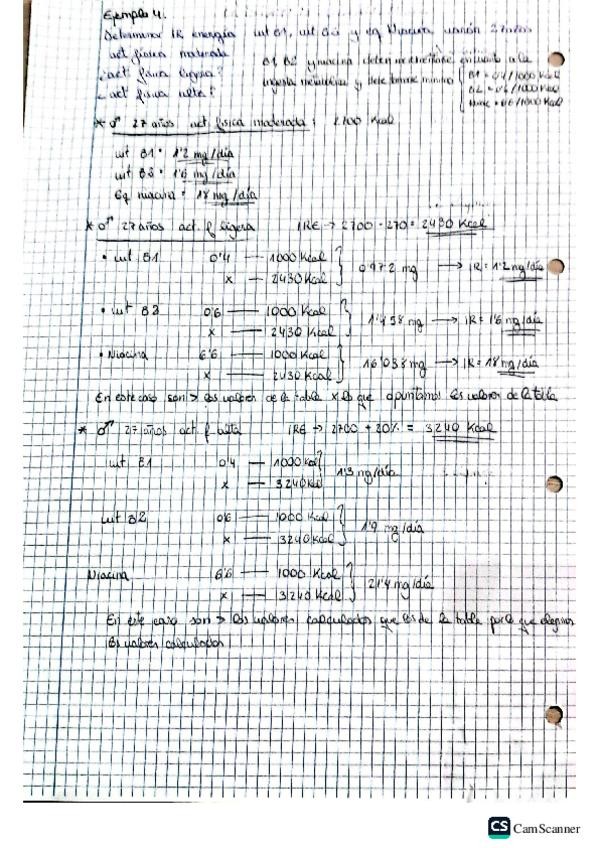 Ejemplo 4.
Determinar IR energía vit B1, vit B2 y eq Niacina varón 27 años
act física moderada
¿act física ligera?
¿act física alta?
B1, B2 y niacina deben en cuanto a la
ingesta energética y debe tomarse mínimo
B1 = 0'4/1000 Kcal
B2 = 0'6/1000 Kcal
Niac = 6'6/1000 Kcal
* ♂ 27 años act física moderada: 2700 Kcal
vit B1 = 1'2 mg/día
vit B2 = 1'6 mg/día
Eq niacina = 18 mg/día
* ♂ 27 años act. f ligera IRE → 2700 - 270 = 2430 Kcal
• vit B1 0'4 — 1000 Kcal
x — 2430 Kcal
0'972 mg → IR = 1'2 mg/día
• vit B2 0'6 — 1000 Kcal
x — 2430 Kcal
1'458 mg → IR = 1'6 mg/día
• Niacina 6'6 — 1000 Kcal
x — 2430 Kcal
16'038 mg → IR = 18 mg/día
En este caso son > los valores de la tabla x lo que apuntamos los valores de la tabla
* ♂ 27 años act. f alta IRE → 2700 + 20% = 3240 Kcal
vit B1 0'4 — 1000 Kcal
x — 3240 Kcal
1'3 mg/día
vit B2 0'6 — 1000 Kcal
x — 3240 Kcal
1'9 mg/día
Niacina 6'6 — 1000 Kcal
x — 3240 Kcal
21'4 mg/día
En este caso son > los valores calculados que los de la tabla por lo que elegimos
los valores calculados
CS CamScanner